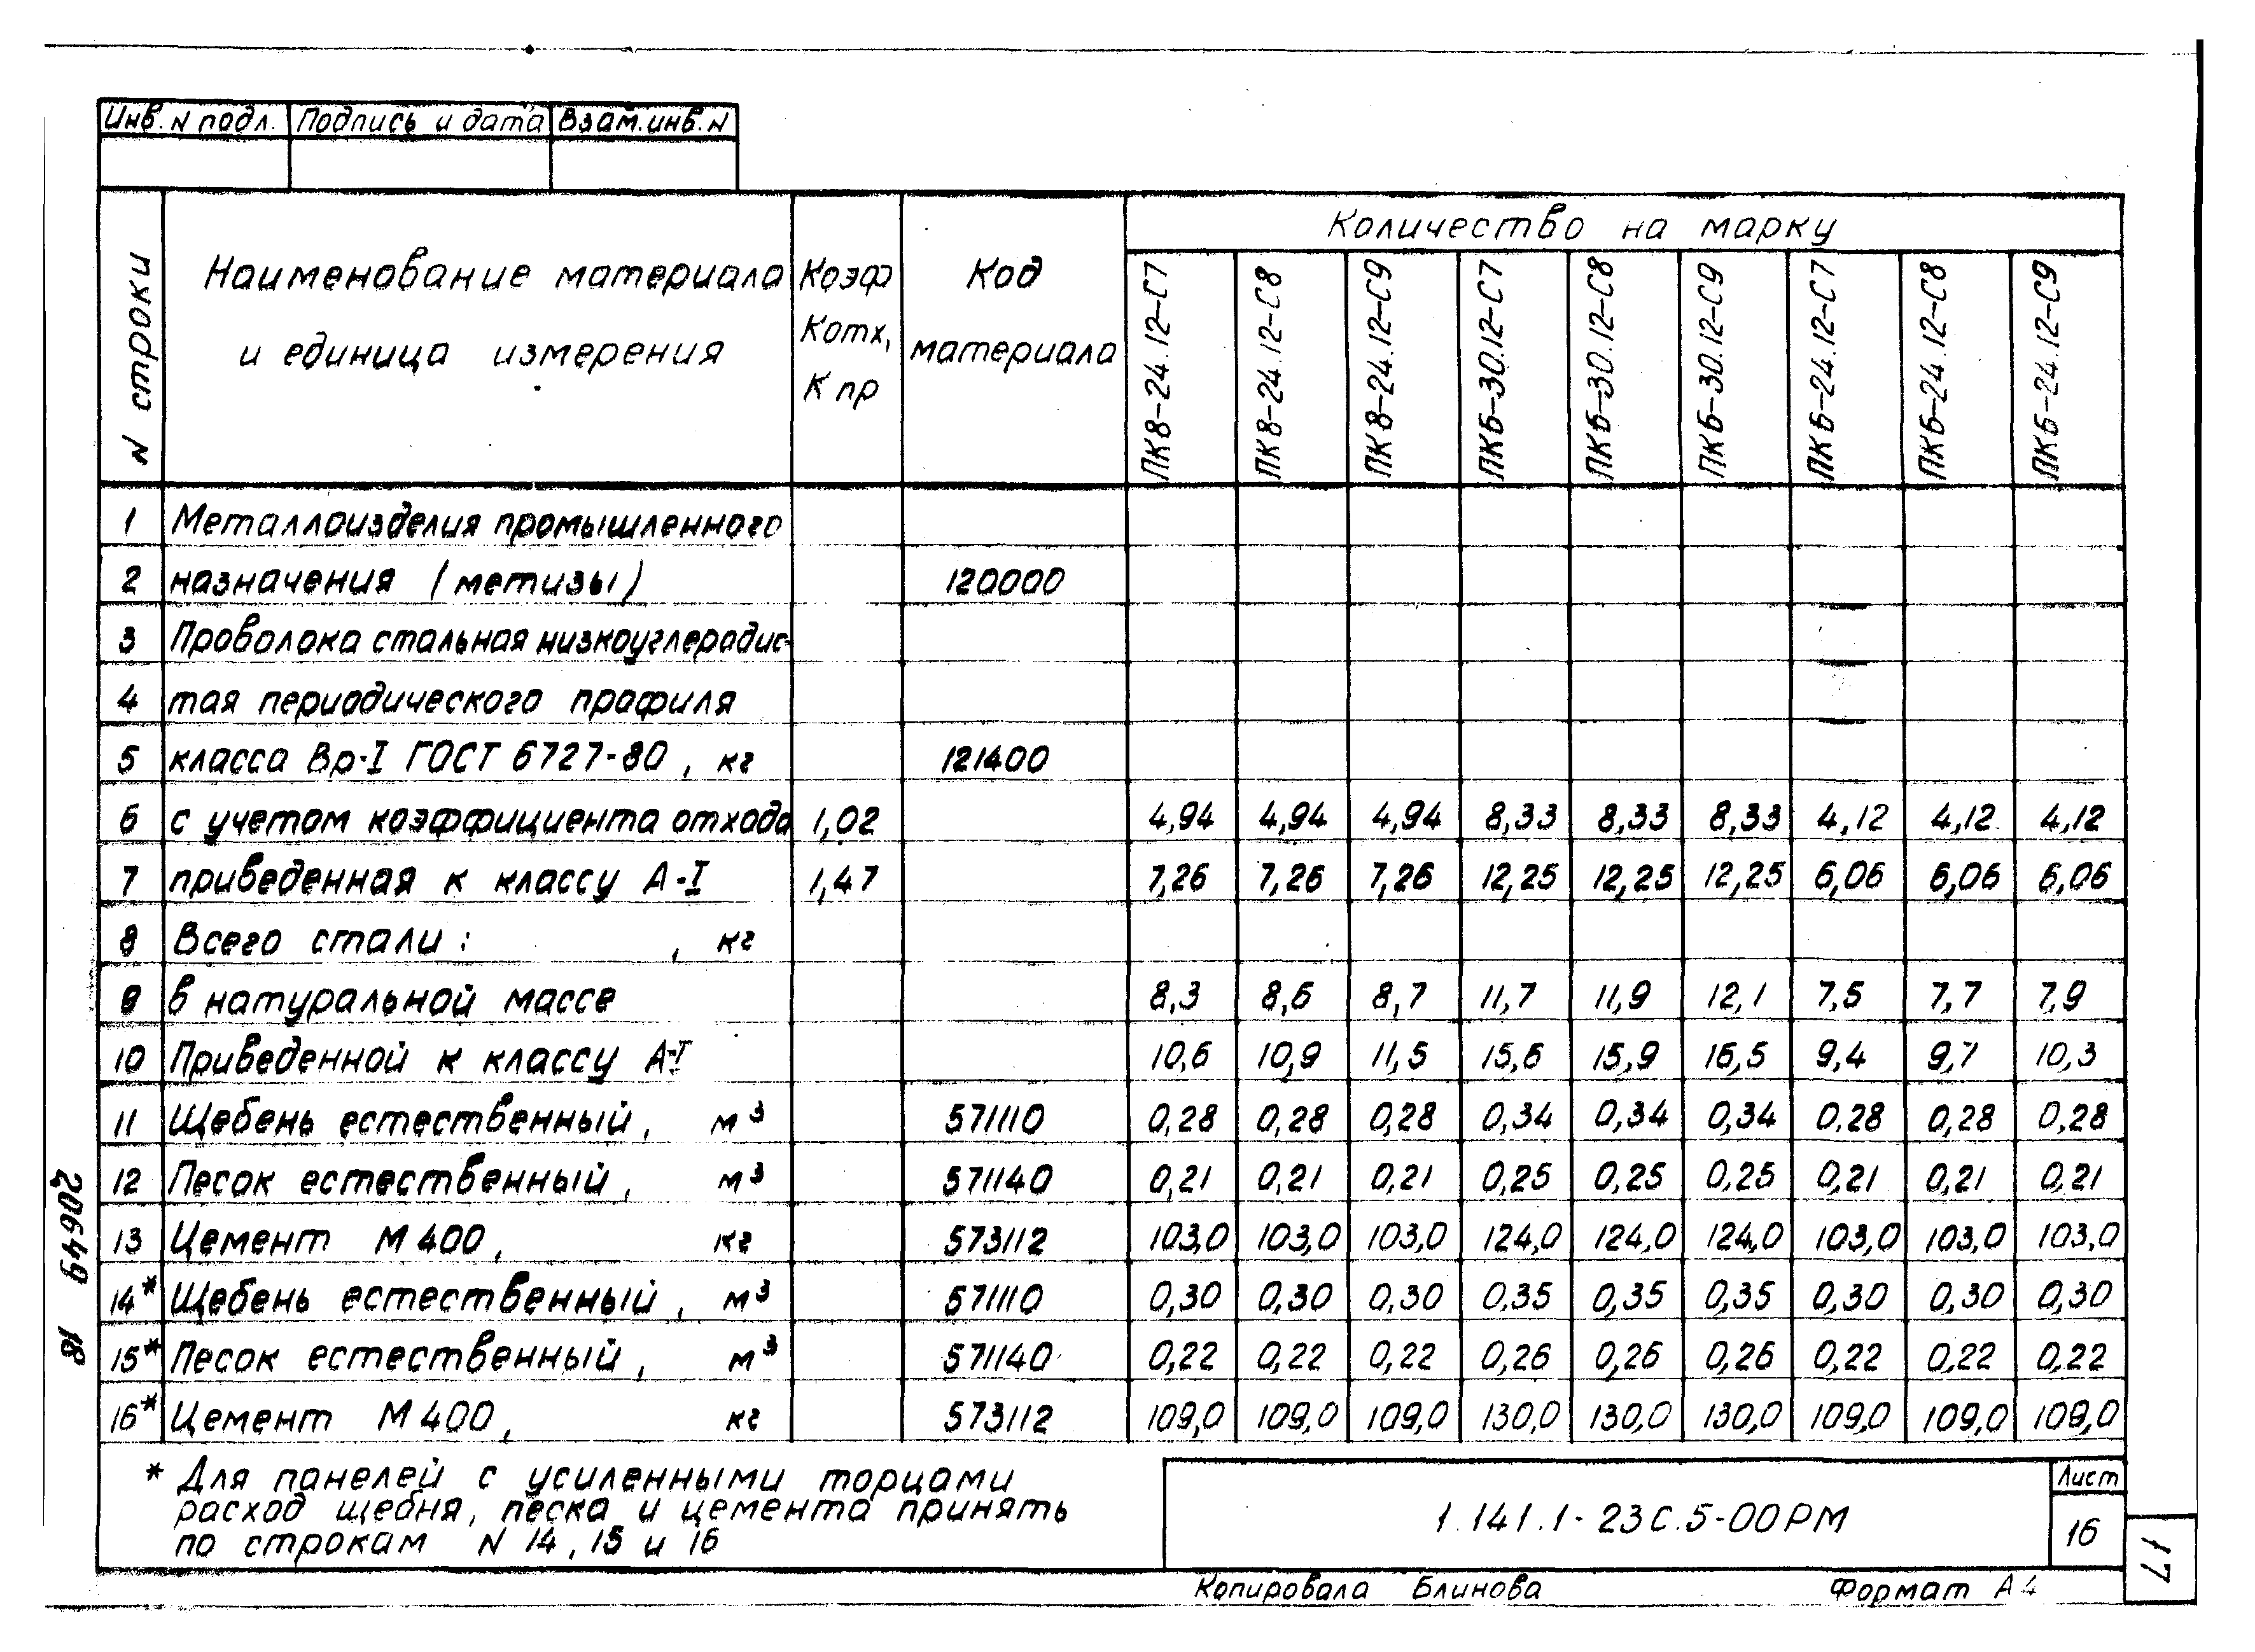 Инв. N подл. Подпись и дата Взам. инв. N
N строки Наименование материала и единица измерения Коэф Котх, К пр Код материала Количество на марку
ПК8-24.12-С7 ПК8-24.12-С8 ПК8-24.12-С9 ПК6-30.12-С7 ПК6-30.12-С8 ПК6-30.12-С9 ПК6-24.12-С7 ПК6-24.12-С8 ПК6-24.12-С9
1 Металлоизделия промышленного
2 назначения (метизы) 120000
3 Проволока стальная низкоуглеродис-
4 тая периодического профиля
5 класса Вр-I ГОСТ 6727-80, кг 121400
6 с учетом коэффициента отхода 1,02 4,94 4,94 4,94 8,33 8,33 8,33 4,12 4,12 4,12
7 приведенная к классу А-I 1,47 7,26 7,26 7,26 12,25 12,25 12,25 6,06 6,06 6,06
8 Всего стали: , кг
9 в натуральной массе 8,3 8,6 8,7 11,7 11,9 12,1 7,5 7,7 7,9
10 Приведенной к классу А-I 10,6 10,9 11,5 15,6 15,9 16,5 9,4 9,7 10,3
11 Щебень естественный, м³ 571110 0,28 0,28 0,28 0,34 0,34 0,34 0,28 0,28 0,28
12 Песок естественный, м³ 571140 0,21 0,21 0,21 0,25 0,25 0,25 0,21 0,21 0,21
13 Цемент М 400, кг 573112 103,0 103,0 103,0 124,0 124,0 124,0 103,0 103,0 103,0
14* Щебень естественный, м³ 571110 0,30 0,30 0,30 0,35 0,35 0,35 0,30 0,30 0,30
15* Песок естественный, м³ 571140 0,22 0,22 0,22 0,26 0,26 0,26 0,22 0,22 0,22
16* Цемент М 400, кг 573112 109,0 109,0 109,0 130,0 130,0 130,0 109,0 109,0 109,0
* Для панелей с усиленными торцами
расход щебня, песка и цемента принять
по строкам N 14, 15 и 16
1.141.1-23С.5-00РМ
Лист
16
17
Копировала Блинова Формат А4
20649 18